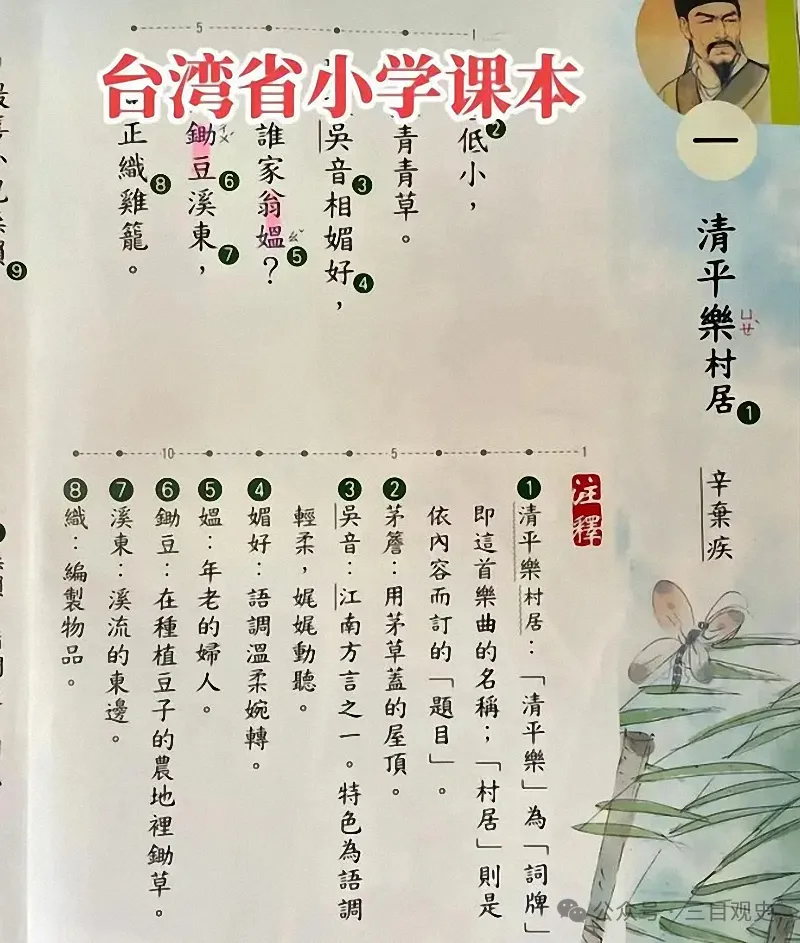 台湾省小学课本
一
清平樂村居❶
ㄩㄝˋ
辛棄疾
1
5
低❷小，
青青草。
吳音❸相媚好❹，
誰家翁媼❺？
ㄠˇ
鋤豆❻溪東❼，
正織❽雞籠。
❾
1
5
10
注釋
❶清平樂村居：「清平樂」為「詞牌」
即這首樂曲的名稱；「村居」則是
依內容而訂的「題目」。
❷茅簷：用茅草蓋的屋頂。
❸吳音：江南方言之一。特色為語調
輕柔，娓娓動聽。
❹媚好：語調溫柔婉轉。
❺媼：年老的婦人。
❻鋤豆：在種植豆子的農地裡鋤草。
❼溪東：溪流的東邊。
❽織：編製物品。
公众号·三目观史